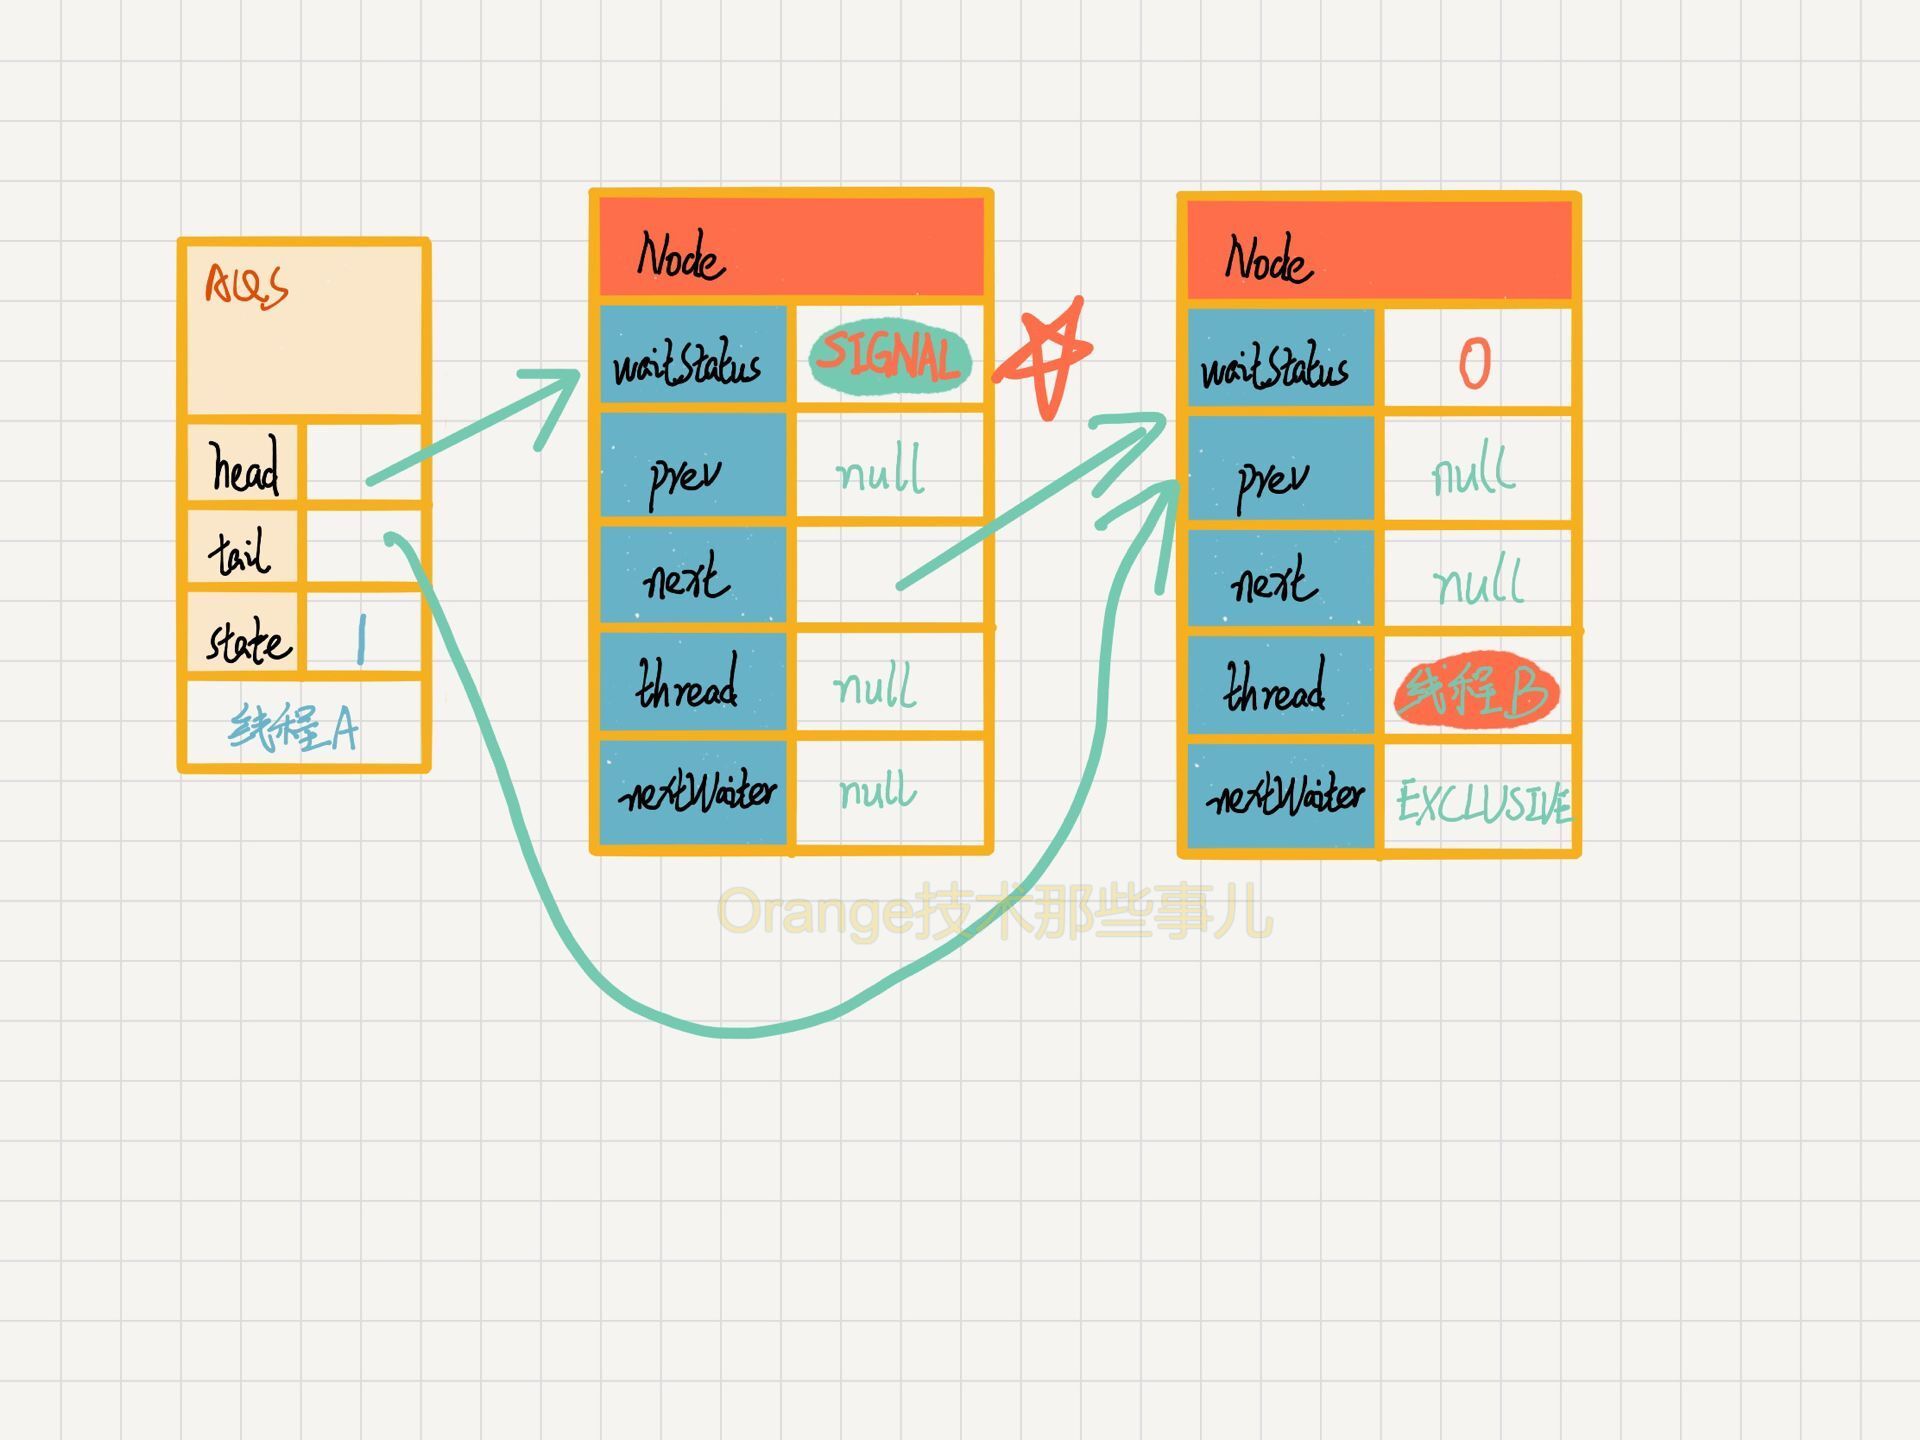 AQS
head
tail
state 1
线程A
Node
waitStatus SIGNAL
prev null
next
thread null
nextWaiter null
Node
waitStatus 0
prev null
next null
thread 线程B
nextWaiter EXCLUSIVE
Orange技术那些事儿